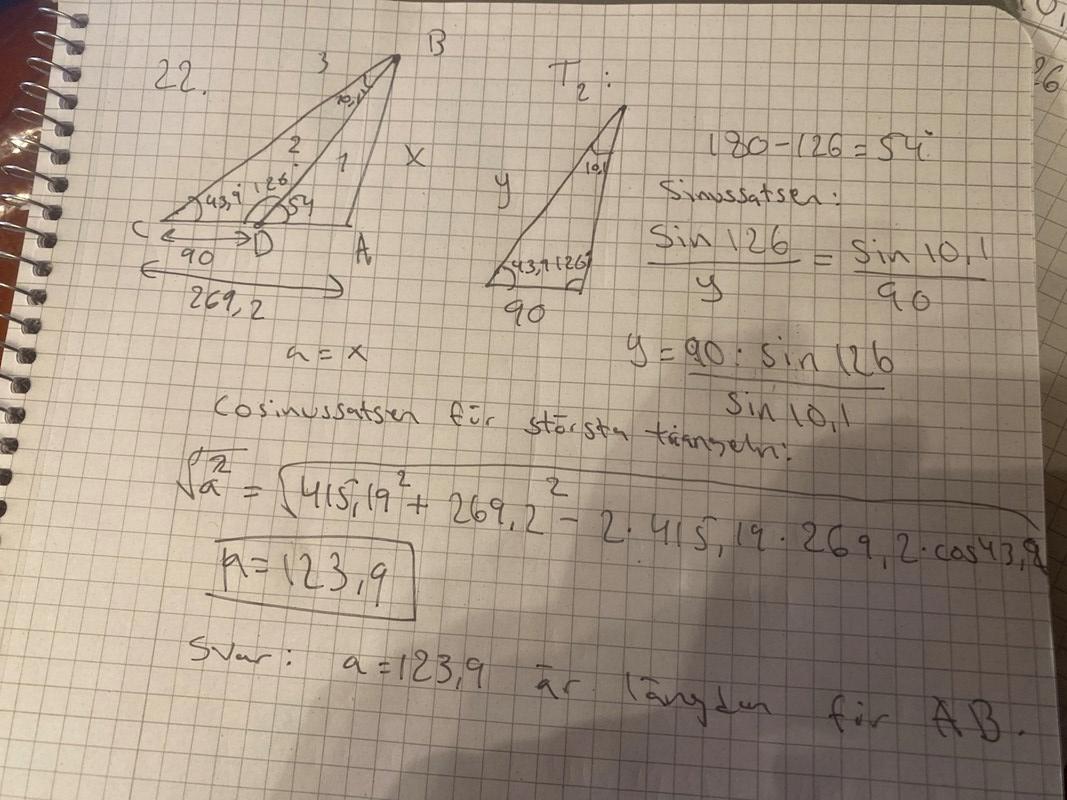 22.
3
B
10,1
2
1
x
43,9°
126°
54
C
90
D
A
269,2
a = x
T2:
y
10,1
43,9
126°
90
180-126=54°
Sinussatsen:
Sin 126 / y = Sin 10,1 / 90
y = 90 · sin 126 / Sin 10,1
Cosinussatsen för största triangeln:
√a² = √415,19² + 269,2² - 2 · 415,19 · 269,2 · cos43,9
a = 123,9
Svar: a = 123,9 är längden för AB.